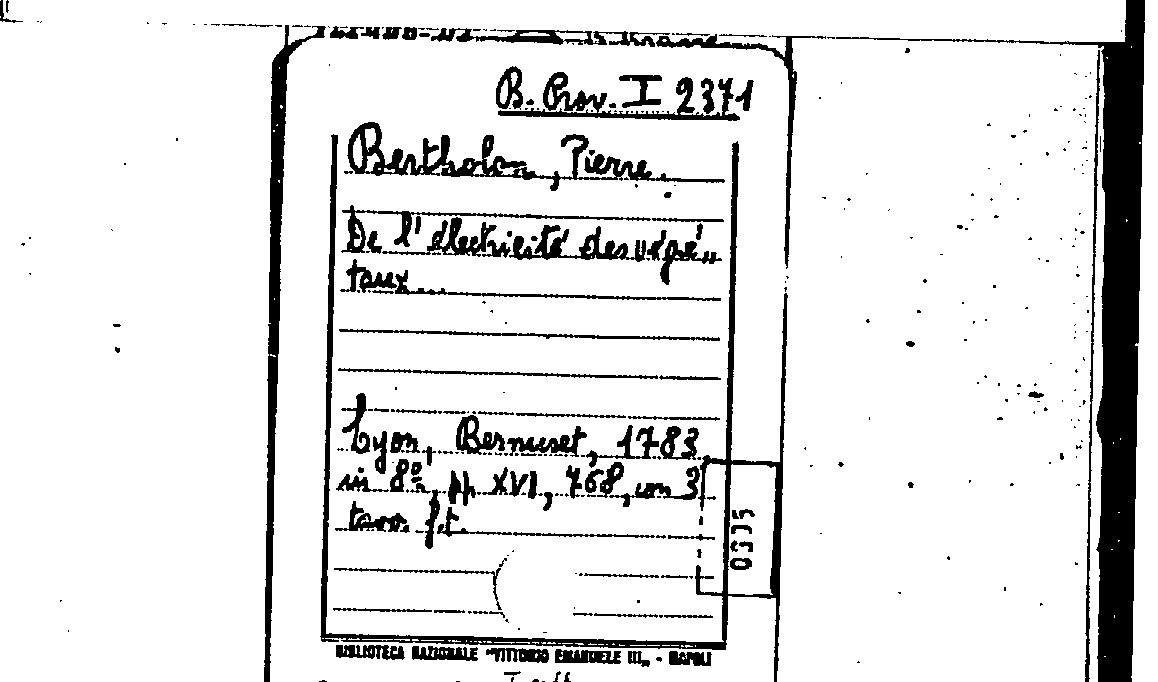 B. Prov. I 2371
Bertholon, Pierre.
De l'électricité des végé„
taux...
Lyon, Bernuset, 1783
in 8º, pp XVI, 468, con 3
tavv. f.t.
0005
BIBLIOTECA NAZIONALE "VITTORIO EMANUELE III„ - NAPOLI